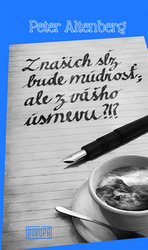 Peter Altenberg
Z našich sĺz
bude múdrosť,
ale z vášho
úsmevu?!?
EUROPA